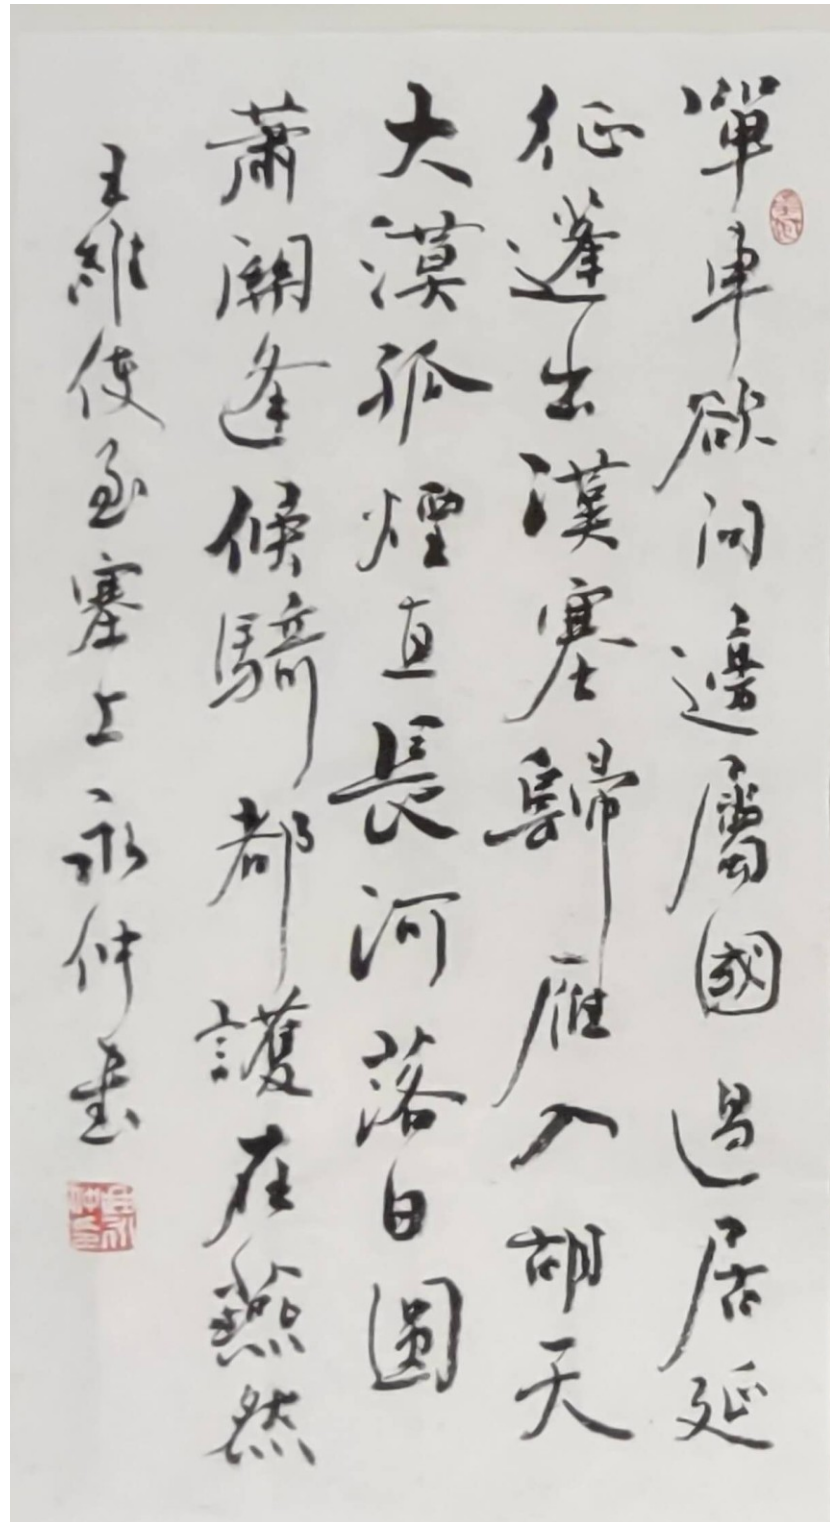 單車欲问邊屬國過居延
征蓬出漢塞歸雁入胡天
大漠孤煙直長河落日圓
蕭關逢候騎都護在燕然
王維使至塞上永仲書